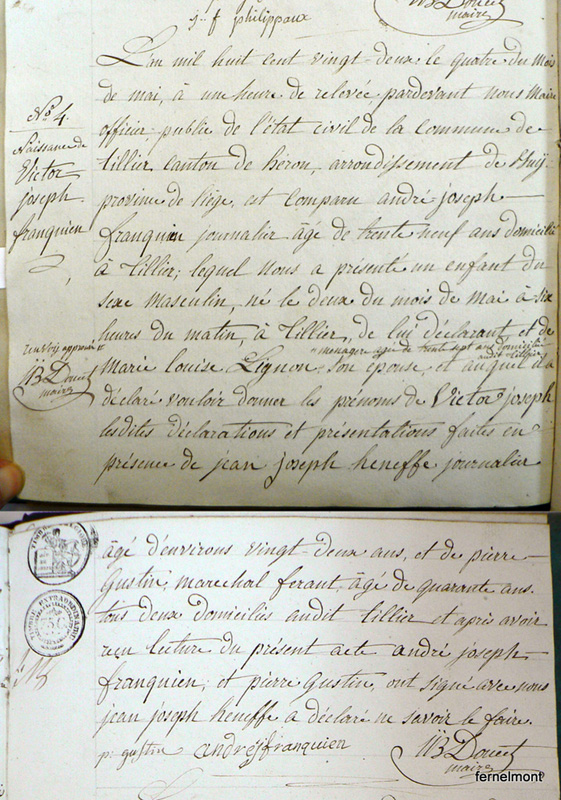 s: f philippaux
Doucet
maire
L'an mil huit cent vingt-deux le quatre du mois
de mai, à une heure de relevée pardevant nous maire
officier public de l'état civil de la commune de
tillier canton de héron, arrondissement de huÿ
province de liège, est comparu andré joseph
franquien journalier âgé de trente neuf ans domicilié
à tillier; lequel nous a présenté un enfant du
sexe masculin, né le deux du mois de mai à six
heures du matin, à tillier, de lui déclarant et de
= menagere agée de trente sept ans domicilié
audit tillier
Marie louise Lignon, son épouse, et auquel il a
déclaré vouloir donner les prénoms de Victor joseph
lesdites déclarations et présentations faites en
présence de jean joseph heneffe journalier
N° 4.
Naissance de
Victor
joseph
franquien
renvoÿ approuvé
Doucet
maire
âgé d'environs vingt-deux ans, et de pierre
Gustin, marechal ferant, âgé de quarante ans.
tous deux domiciliés audit tillier et après avoir
reçu lecture du présent acte andré joseph
franquien, et pierre Gustin, ont signé avec nous
jean joseph heneffe a déclaré ne savoir le faire.
p: gustin andréjfranquien Doucet
maire
fernelmont